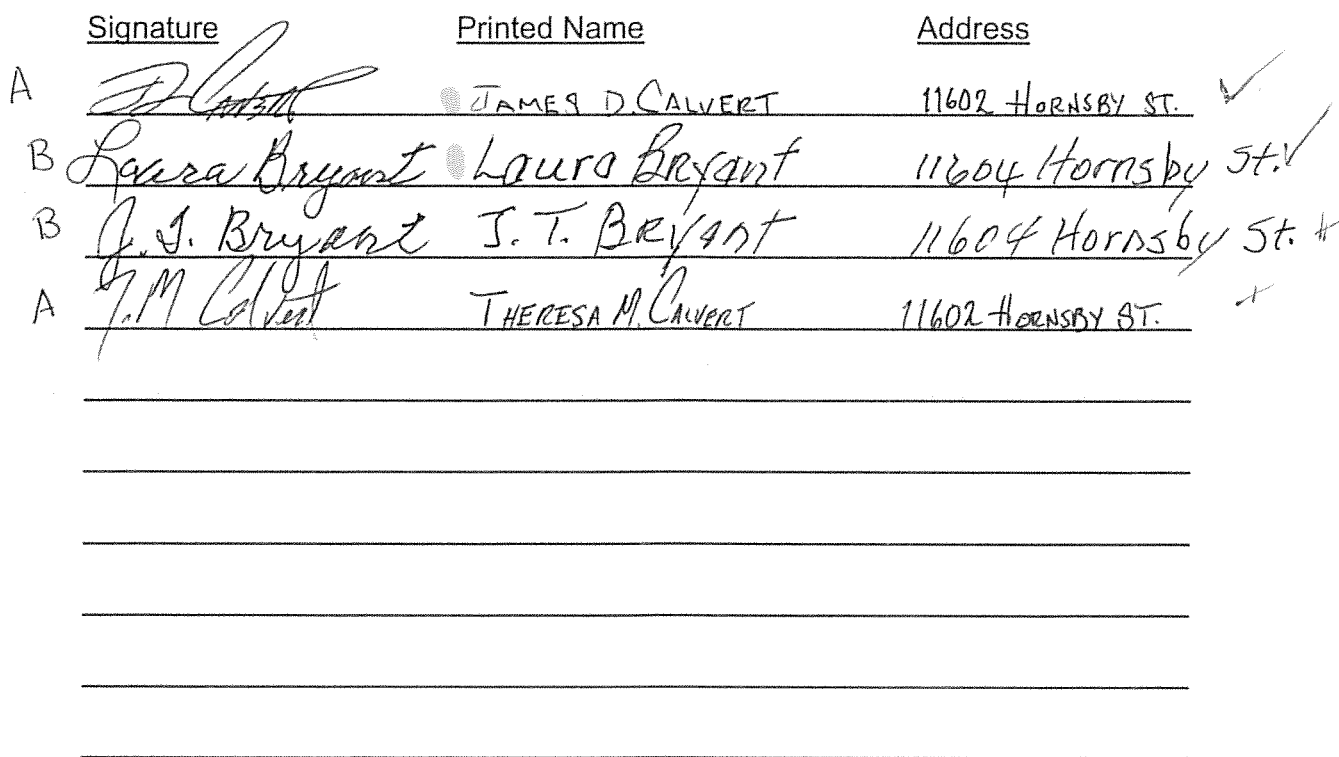 Signature Printed Name Address
A JAMES D. CALVERT 11602 HORNSBY ST. ✓
B Laura Bryant Laura Bryant 11604 Hornsby St. ✓
B J.T. Bryant J.T. BRYant 11604 Hornsby St. +
A T.M Calvert THERESA M. CALVERT 11602 HORNSBY ST. +